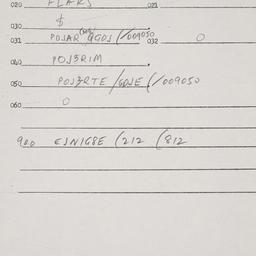 020 FLAKS 021
030 $
031 POJAR GGOJ (/009050 032 O
040 POJ5RIM
050 POJ3RTE /GOJE (/009050
060 O
900 EJNIG8E (212 (812